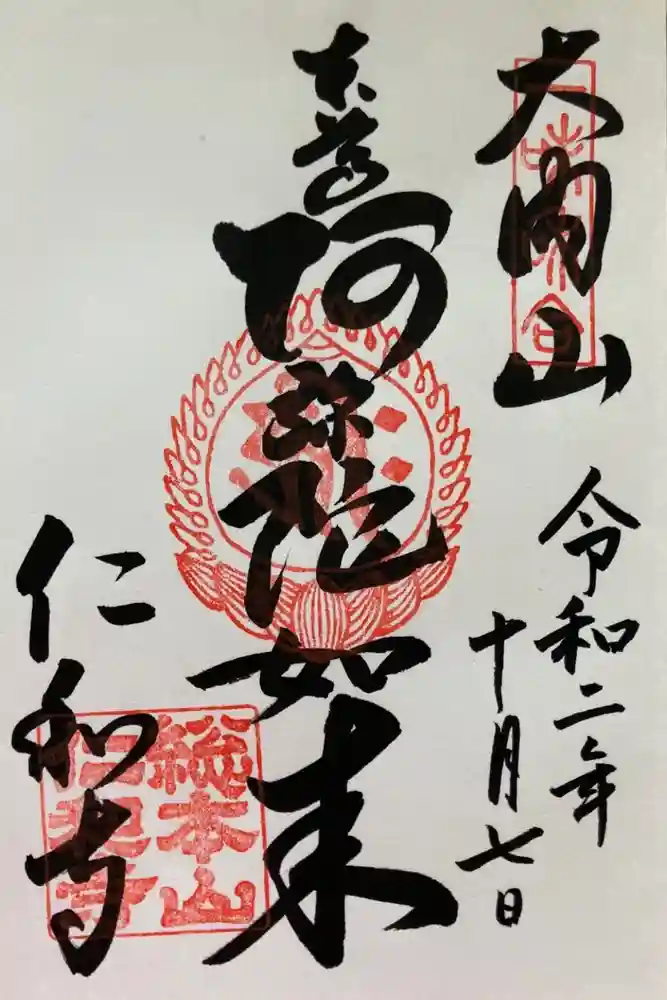 大内山
令和二年
十月七日
本尊
阿弥陀如来
仁和寺
総本山
仁和寺